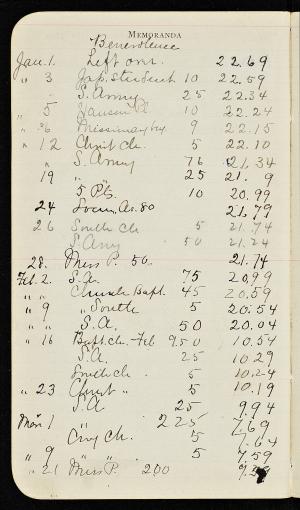 MEMORANDA
Benevolence
Jan. 1. Left over. 22.69
" 3 Jap. student 10 22.59
" S. Army 25 22.34
" 5 10 22.24
" Missionary 9 22.15
" 12 Christ ch. 5 22.10
" S. Army 76 21.34
19 " 25 21. 9
5 Pts. 10 20.99
24 .80 21.79
26 South ch 5 21.74
S. Army 50 21.24
28. Miss P. 50. 21.74
Feb. 2. S.A. 75 20.99
" " Church Bapt. 45 20.59
" 9 " South 5 20.54
" " S.A. 50 20.04
" 16 Bapt. ch. - Feb 9.50 10.54
S.A. 25 10.29
South ch. 5 10.24
" 23 Christ " 5 10.19
S.A 25 9.94
Mar. 1 " 2 25 7.69
ch. 5 7.64
" 9 " 5 7.59
" 21 Miss P. 200